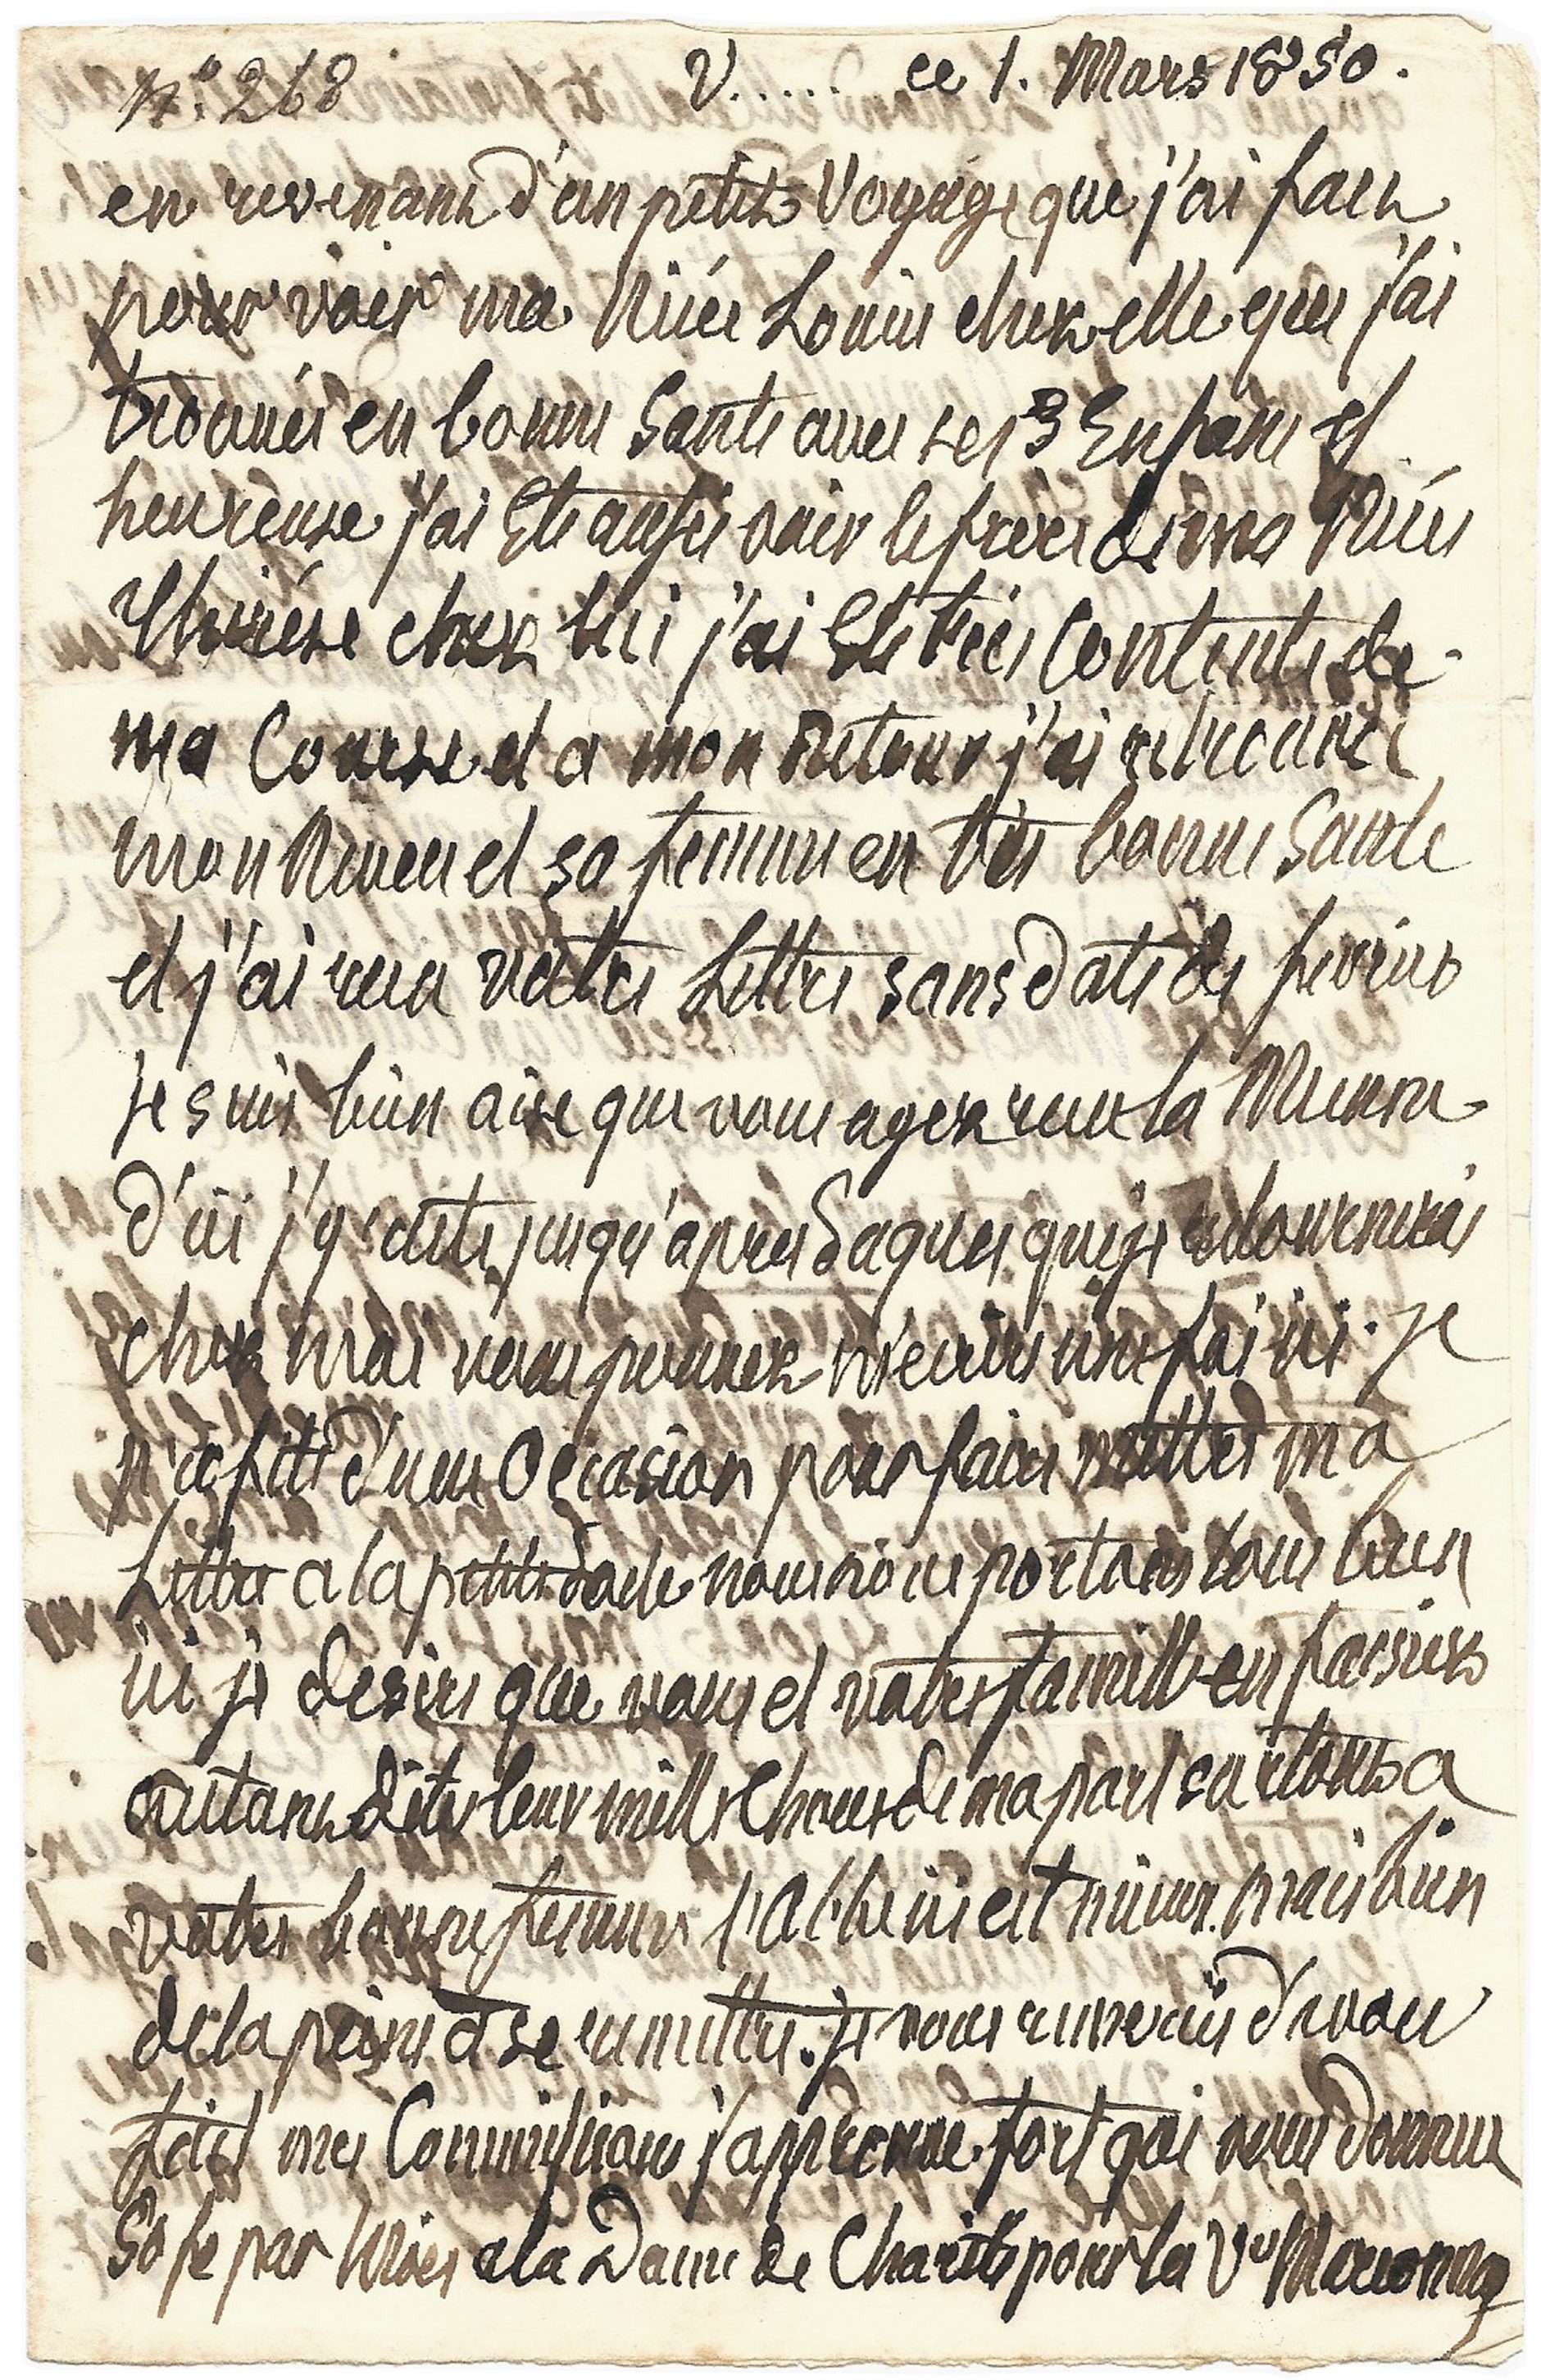 N.° 268 V...... ce 1. Mars 1850.
en revenant d'un petit Voyage que j'ai fait
pour voir ma Niéce Louise chez elle que j'ai
trouvée en bonne Santé avec ses 3 Enfans et
heureuse j'ai Eté aussi voir le frère de ma Niéce
Thérèse chez lui j'ai Eté très Contente de
ma Course et a mon Retour j'ai retrouvé
mon Neveu et sa femme en très bonne Santé
et j'ai recu votre Lettre sans date de fevrier
je suis bien aise que vous ayez recu la Mienne
d'ici j'y reste jusqu'apres Paques que je retournerai
chez moi vous pouvez m'ecrire une fois ici. je
profite d'une Occasion pour faire mettre ma
Lettre a la petite nous nous portons tous bien
ici je desire que vous et votre famille en fassiez
autant dites leur mille Choses de ma part surtout a
votre bonne femme l'Abbé ici est mieux mais bien
de la peine a se remettre. je vous remercie d'avoir
fait mes Commissions j'approuve fort que vous donniez
50 fr par a la Dame de Charité pour la V.e